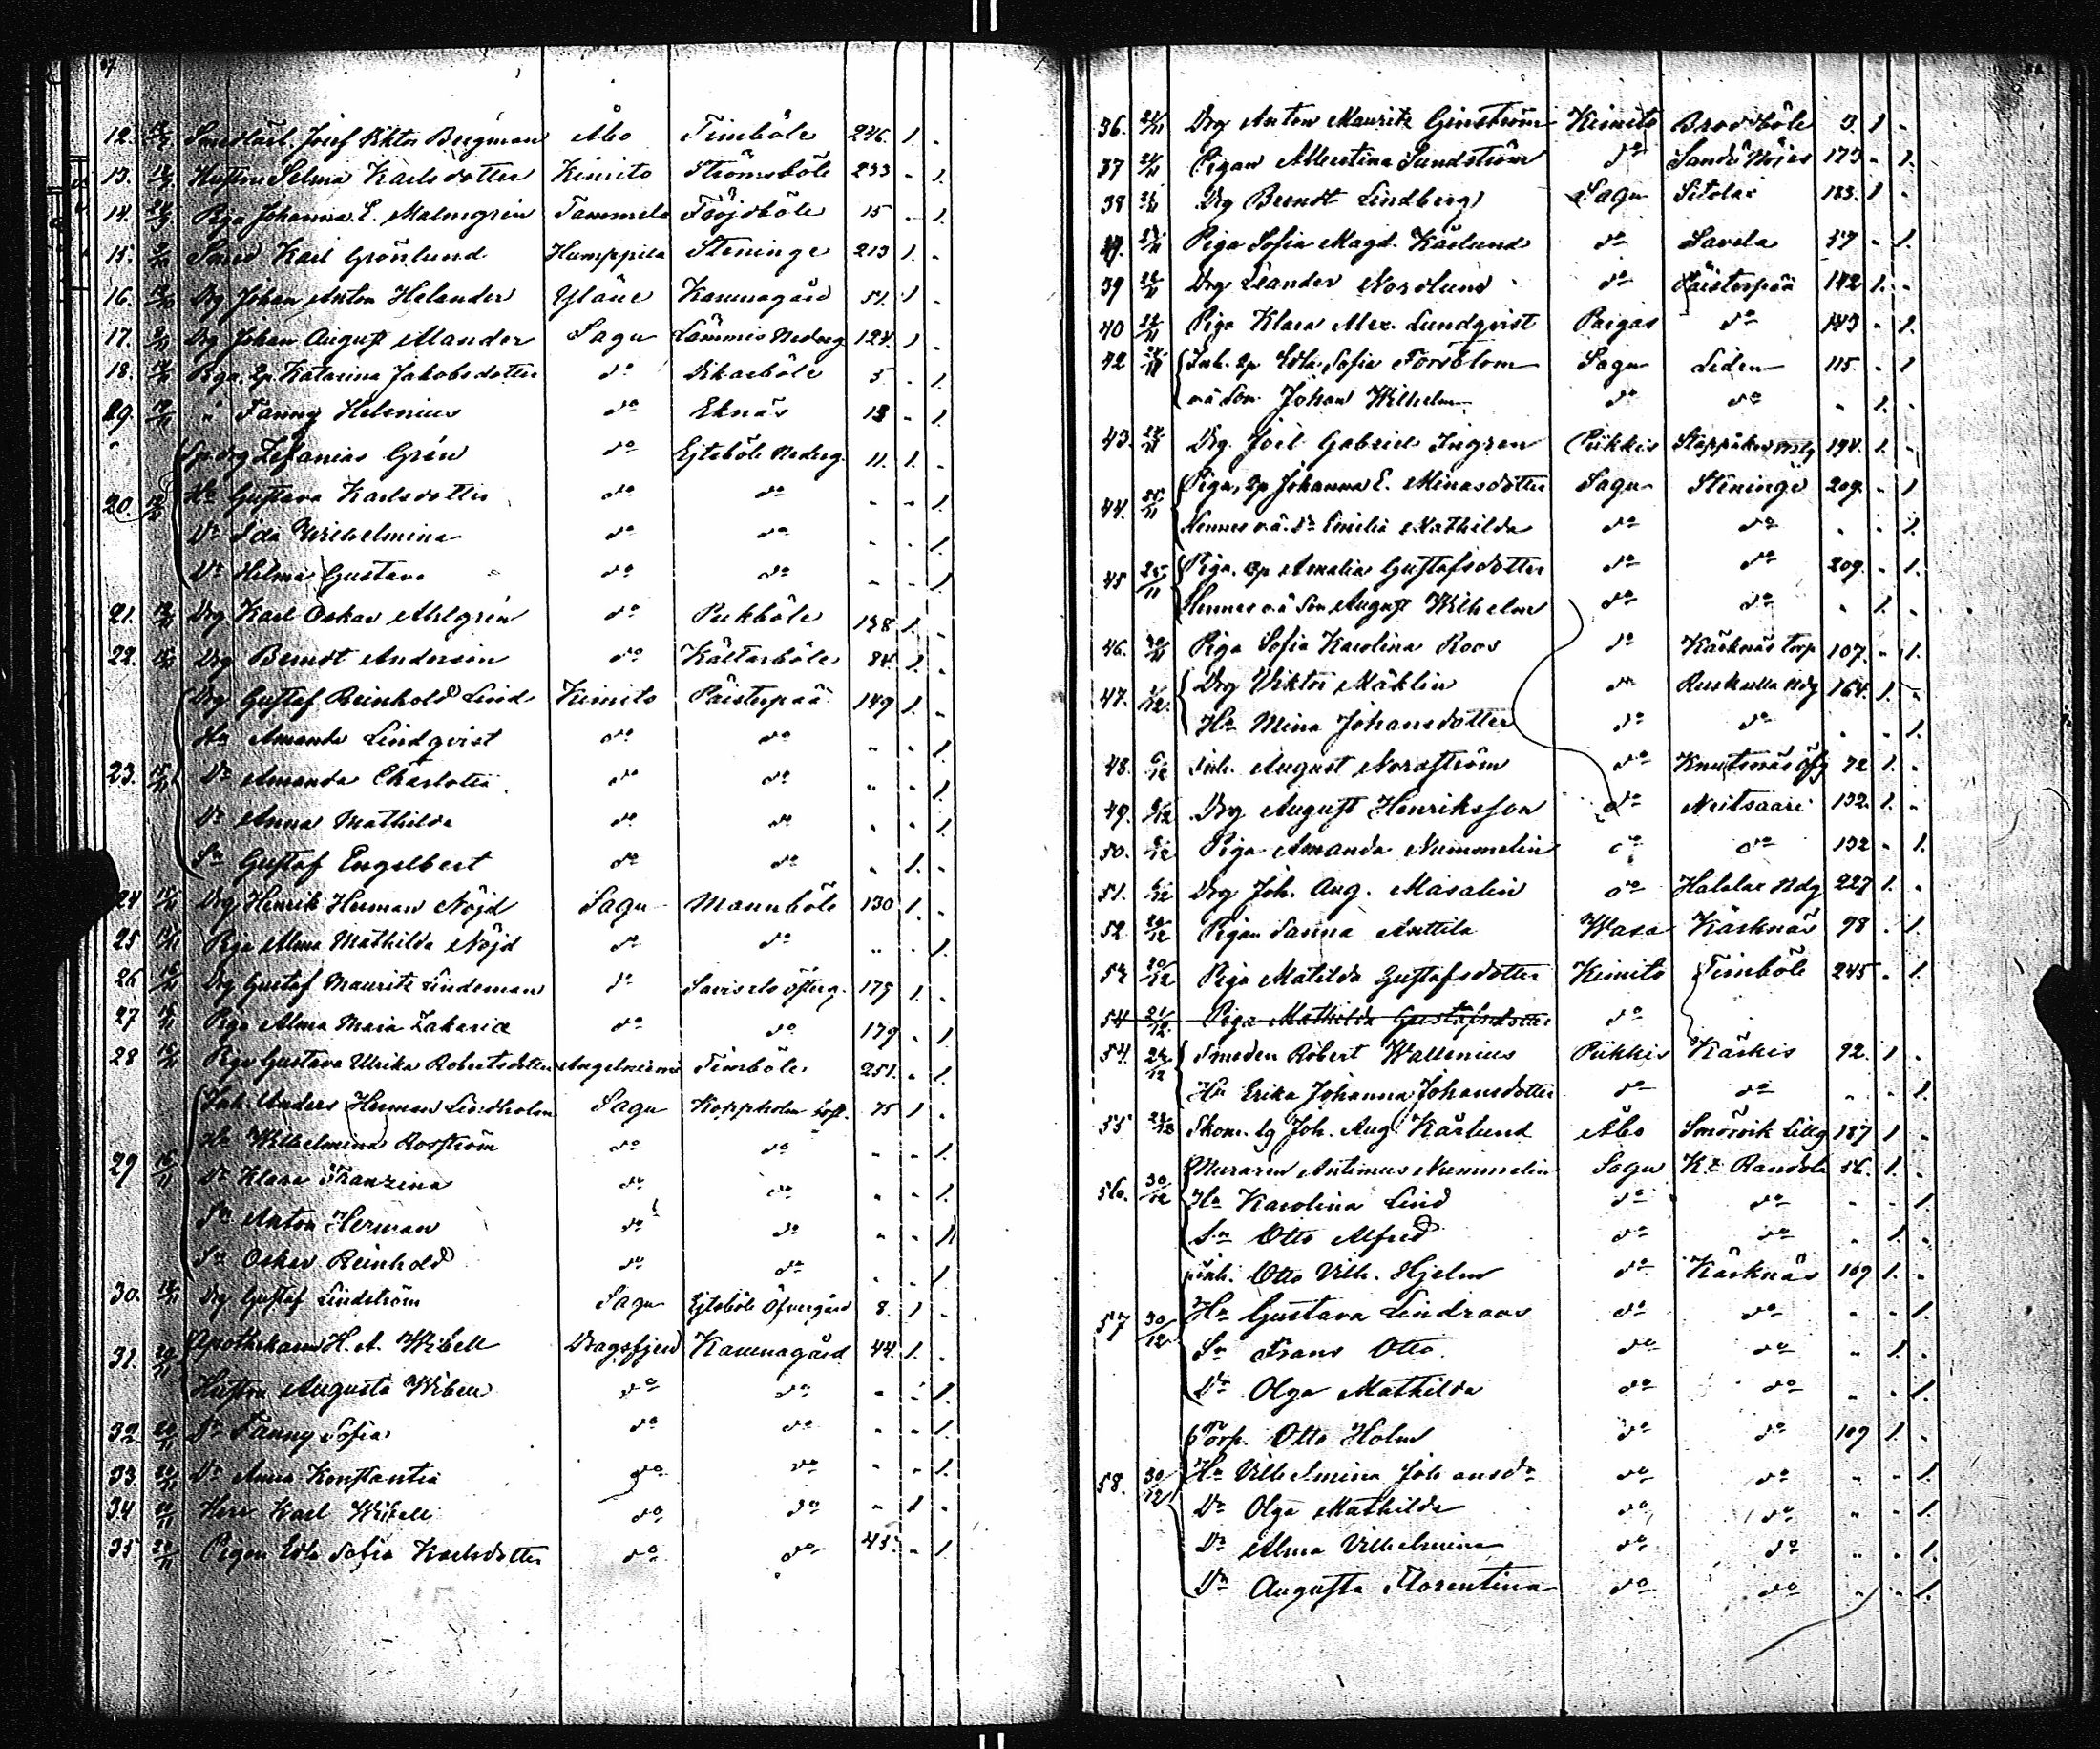 12. Smedlärl. Josef Viktor Bergman Åbo Timböle 246. 1. -
13. Hustru Selma Karlsdotter Kimito Strömsböle 233 - 1.
14. Piga Johanna E. Malmgrén Tammela Fröjdböle 15 - 1.
15. Smed Karl Grönlund Humppila Steninge 213 1. -
16. Drg Johan Anton Helander Yläne Karunagård 51. 1 -
17. Drg Johan August Alander Sagu Lämmis Nederg 124. 1 -
18. Piga, Sp. Katarina Jakobsdotter do 5 - 1.
" Fanny Helenius do Eknäs 13 - 1.
Sp. drg Zefanias Grén do Ejtsböle Nederg. 11. 1. -
20. 12/11 Hu Gustava Karlsdotter do do - - 1.
Dr Ida Wilhelmina do do - - 1.
Dr Hilma Gustava do do - - 1.
21. Drg Karl Oskar Ahlgrén do Pukböle 138 1. -
22. Drg Berndt Anderson do Kättarböle 84. 1. -
Drg Gustaf Reinhold Lind Kimito Päisterpää 149 1. -
Hu Amanda Lindqvist do do " - 1.
23. 15/11 Dr Amanda Charlotta do do " - 1.
Dr Anna Mathilda do do - - 1.
Sn Gustaf Engelbert do do - 1. -
24 15/11 Drg Henrik Herman Nöjd Sagu Mannböle 130 1. -
25 Piga Alma Mathilda Nöjd do do " - 1.
26 Drg Gustaf Mauritz Lindeman do Öfverg. 179 1. -
27 Piga Alma Maria Zakariæ do do 179 - 1.
28 Piga Gustava Ulrika Robertsdotter Angelniemi Timböle 251. - 1.
Inh. Anders Herman Lindholm Sagu Koppholm 75 1 -
Hu Wilhelmina Rosström do do - - 1.
29 Dr Klara Franzina do do - - 1.
Sn Anton Herman do do - - 1
Sn Oskar Reinhold do do - - 1
30. Drg Gustaf Lindström Sagu Ejtsböle Öfvergård 8. 1 -
31. 20/11 Apothekaren H. A. Wibell Dragsfjerd Karunagård 44. 1. -
Hustru Augusta Wibell do do - - 1.
32. 20/11 Dr Fanny Sofia do do - - 1.
33. 20/11 Dr Anna Konstantia do do - - 1.
34 20/11 Herr Karl Wibell do do - 1 -
35 20/11 Pigan Edla Sofia Karlsdotter do do 45. - 1.
36. 21/11 Drg Anton Mauritz Genström Kimito Brodböle 3. 1 -
37 Pigan Albertina Sundström do Sandö 173 - 1.
38 Drg Berndt Lindberg Sagu Sitolax 183. 1 -
Piga Sofia Magd. Kârlund do Savela 57 - 1.
39 Drg Leander Nordlund do Päisterpää 142 1. -
40 Piga Klara Alex. Lundqvist Pargas do 143 - 1.
42 Inh. Sp Edla Sofia Forsblom Sagu Liden 115. - 1
o.ä. Son Johan Wilhelm do do - 1. -
43. Drg. Joel Gabriel Ingren Piikkis 194. 1. -
44. 25/11 Piga, Sp Johanna E. Minasdotter Sagu Steninge 209. - 1
Hennes o.ä. dr Emilia Mathilda do do - - 1.
45 25/11 Piga. Sp Amalia Gustafsdotter do do 209. - 1.
Hennes o.ä. Son August Wilhelm do do - 1. -
46. 30/11 Piga Sofia Karolina Roos do Kärknäs torp 107. - 1.
47. 1/12. Drg Viktor Mäklin do Ruskulla Ndg 164. 1. -
Hu Mina Johansdotter do do - - 1.
48. 6/12 Inh. August Nordström do Knutsnäs Öfg 72 1. -
49. 6/12 Drg August Henriksson do Neitsaari 132. 1. -
50. 6/12 Piga Amanda Nummelin do do 132 - 1.
51. 6/12 Drg Joh. Aug. Masalin do Halslax Ndg 227 1. -
52. 20/12 Pigan Sanna Anttila Wasa Kärknäs 98 . 1
53 20/12 Piga Matilda Gustafsdotter Kimito Timböle 245 - 1.
54 21/12 Piga Mathilda Gustafsdotter do
54. 23/12 Smeden Robert Wallenius Piikkis Kärkis 92. 1 -
Hu Erika Johanna Johansdotter do do - - 1.
55 23/12 Skom. lg Joh. Aug. Kârlund Åbo Smörvik Lillg 187 1 -
56. 30/12 Muraren Antimus Nummelin Sagu Randola 56. 1. -
Hu Karolina Lind do do - - 1
Sn Otto Alfred do do - 1. -
inh. Otto Vilh. Hjelm do Kärknäs 109 1. -
57 30/12 Hu Gustava Lindroos do do - - 1.
Sn Frans Otto. do do " 1. -
Dr Olga Mathilda do do " - 1.
Torp. Otto Holm do do 109 1. -
58. 30/12 Hu Vilhelmina Johansdr do do " - 1.
Dr Olga Mathilda do do " - 1.
Dr Alma Vilhelmina do do " - 1.
Dr Augusta Florentina do do " - 1.